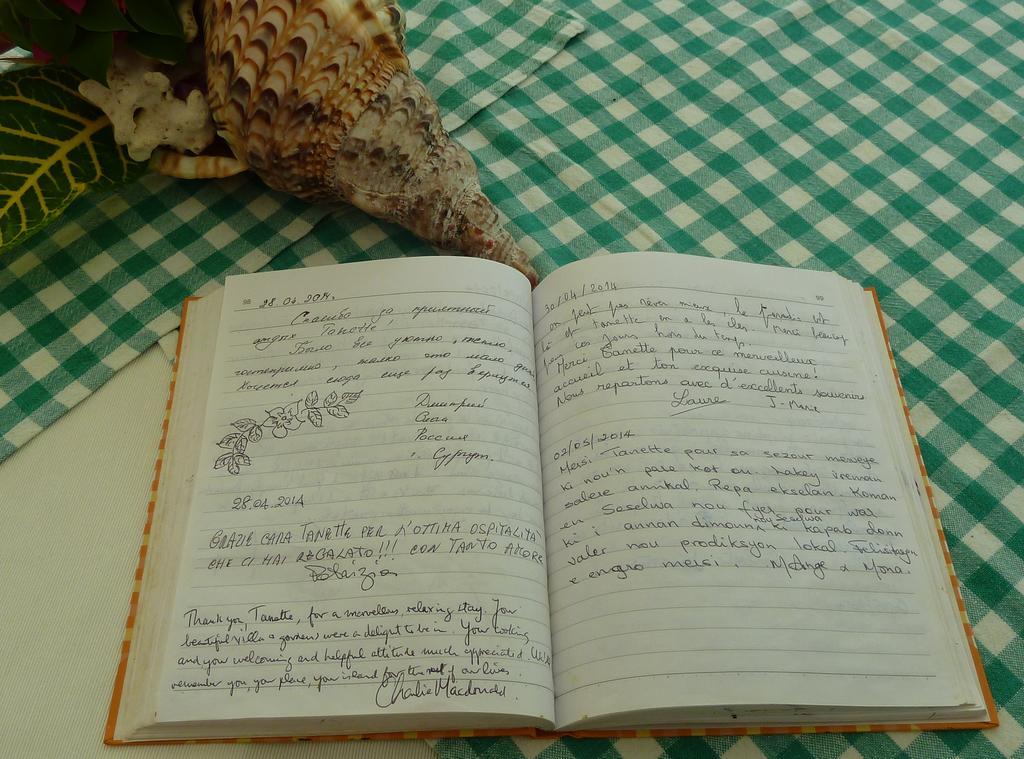 98
28.04.2014.
Спасибо за приятный
отдых Tanette,
Было все уютно, тепло,
гостеприимно, жалко что мало дней
Хочется сюда еще раз вернуться
Дмитрий
Света
Россия
г. Сургут.
28.04.2014
GRAZIE CARA TANETTE PER L'OTTIMA OSPITALITÀ
CHE CI HAI REGALATO!!! CON TANTO AMORE
Thank you, Tanette, for a marvellous, relaxing stay. Your
beautiful villa & gardens were a delight to be in. Your cooking
and your welcoming and helpful attitude much appreciated. Will
remember you, your place, your island for the rest of our lives.
Charlie Macdonald.
99
30/04/2014
on peut pas rêver mieux, le Paradis est
là et Tanette un de les îles. Merci beaucoup
pour ces jours hors du temps.
Merci Tanette pour ce merveilleux
accueil et ton exquise cuisine!
Nous repartons avec d'excellents souvenirs
Laure J-Marie
02/05/2014
Mersi Tanette pour sa sezour merveye
ki nou'n pase kot ou. Lakey vreman
salere annikal. Repa ekselan. Koman
en Seselwa nou fyer pour war
ki i annan dimoun nou Seselwa ki kapab donn
valer nou prodiksyon lokal. Felisitasyon
e engro mersi. M Ange & Mona.